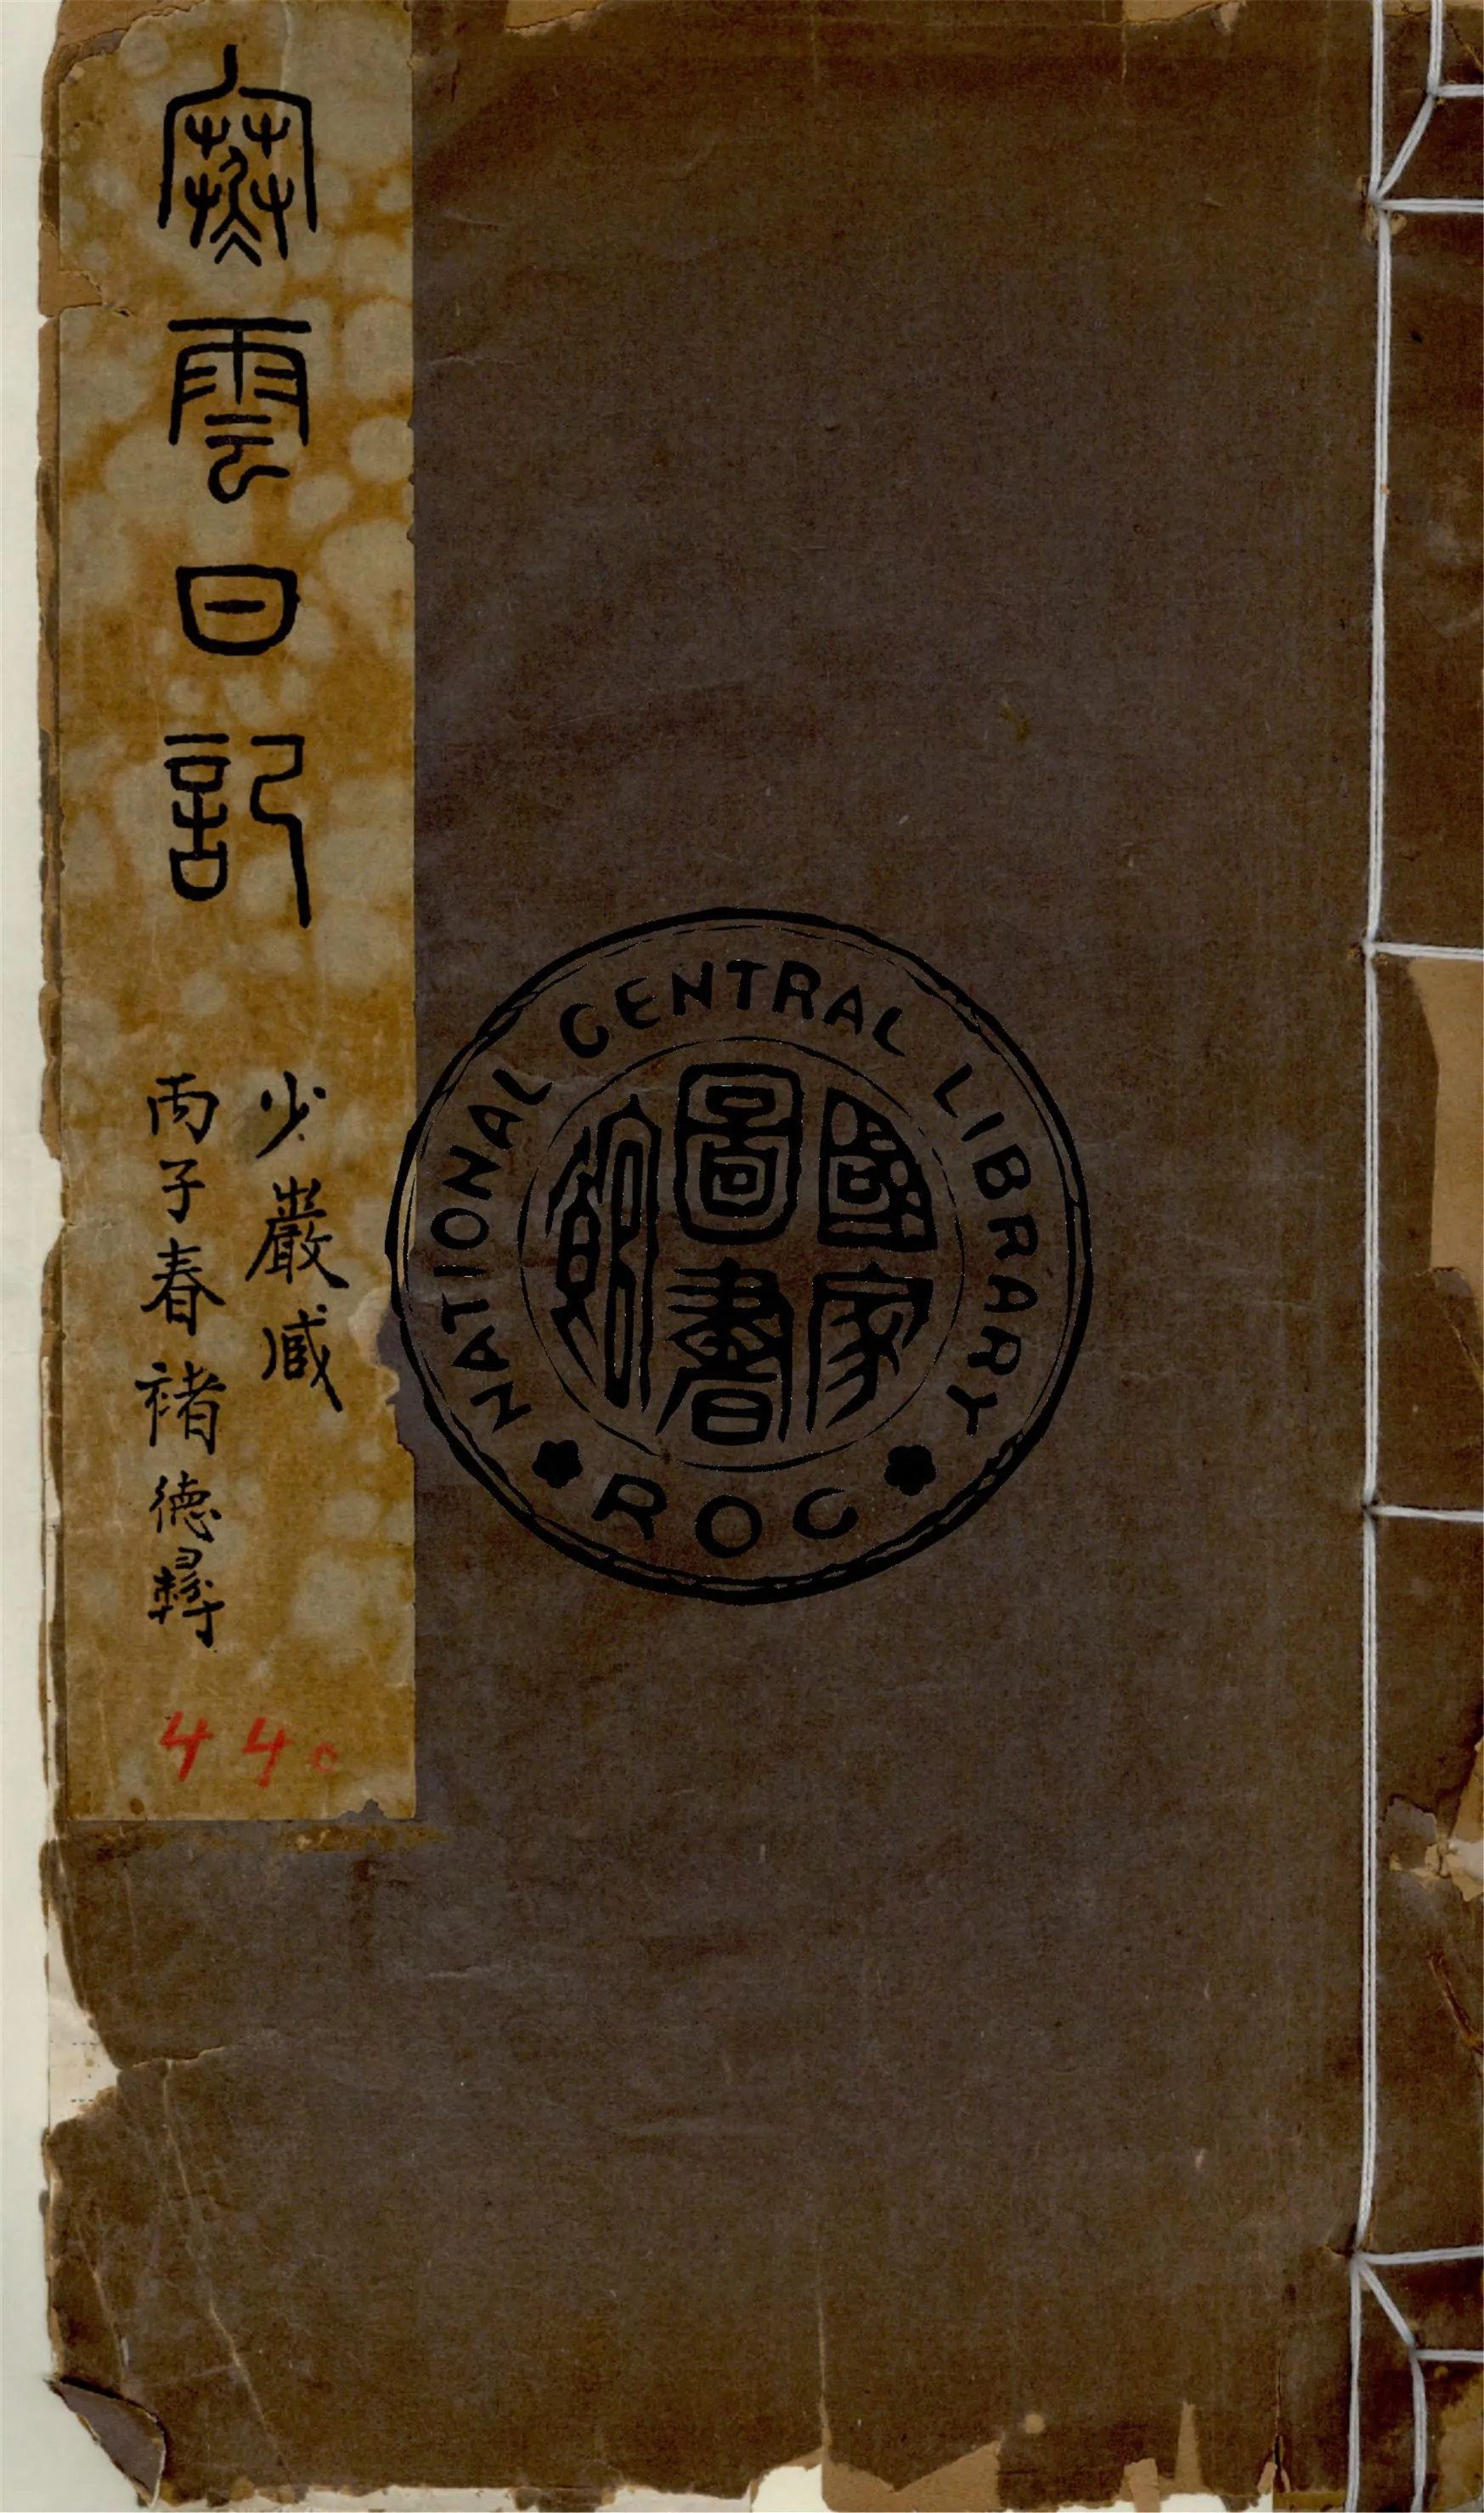 寒雲日記
少巖臧
丙子春褚德彝
440
NATIONAL CENTRAL LIBRARY
國家
圖書
館
ROC